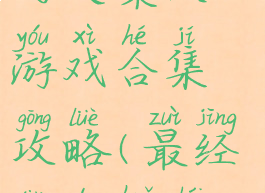 yóu xì hé jí
游戏合集
gōng lüè zuì jīng
攻略(最经